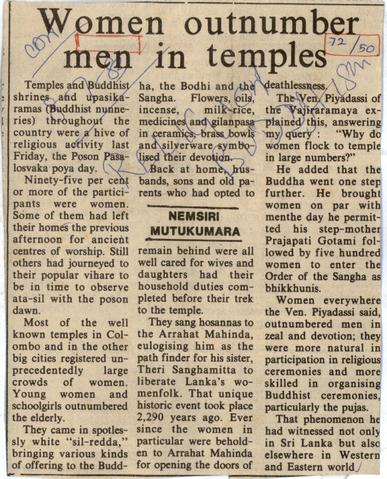 Women outnumber
men in temples
72
/50
Temples and Buddhist
shrines and upasika-
ramas (Buddhist nunne-
ries) throughout the
country were a hive of
religious activity last
Friday, the Poson Pasa-
losvaka poya day.
Ninety-five per cent
or more of the partici-
pants were women.
Some of them had left
their homes the previous
afternoon for ancient
centres of worship. Still
others had journeyed to
their popular vihare to
be in time to observe
ata-sil with the poson
dawn.
Most of the well
known temples in Col-
ombo and in the other
big cities registered un-
precedentedly large
crowds of women.
Young women and
schoolgirls outnumbered
the elderly.
They came in spotles-
sly white "sil-redda,"
bringing various kinds
of offering to the Budd-
ha, the Bodhi and the
Sangha. Flowers, oils,
incense, milk-rice,
medicines and gilanpasa
in ceramic, brass bowls
and silverware symbo-
lised their devotion.
Back at home, hus-
bands, sons and old pa-
rents who had opted to
NEMSIRI
MUTUKUMARA
remain behind were all
well cared for wives and
daughters had their
household duties com-
pleted before their trek
to the temple.
They sang hosannas to
the Arrahat Mahinda,
eulogising him as the
path finder for his sister,
Theri Sanghamitta to
liberate Lanka's wo-
menfolk. That unique
historic event took place
2,290 years ago. Ever
since the women in
particular were behold-
en to Arrahat Mahinda
for opening the doors of
deathlessness.
The Ven. Piyadassi of
the Vajiraramaya ex-
plained this, answering
my query: "Why do
women flock to temple
in large numbers?"
He added that the
Buddha went one step
further. He brought
women on par with
menthe day he permit-
ted his step-mother
Prajapati Gotami fol-
lowed by five hundred
women to enter the
Order of the Sangha as
bhikkhunis.
Women everywhere
the Ven. Piyadassi said,
outnumbered men in
zeal and devotion; they
were more natural in
participation in religious
ceremonies and more
skilled in organising
Buddhist ceremonies,
particularly the pujas.
That phenomenon he
had witnessed not only
in Sri Lanka but also
elsewhere in Western
and Eastern world.